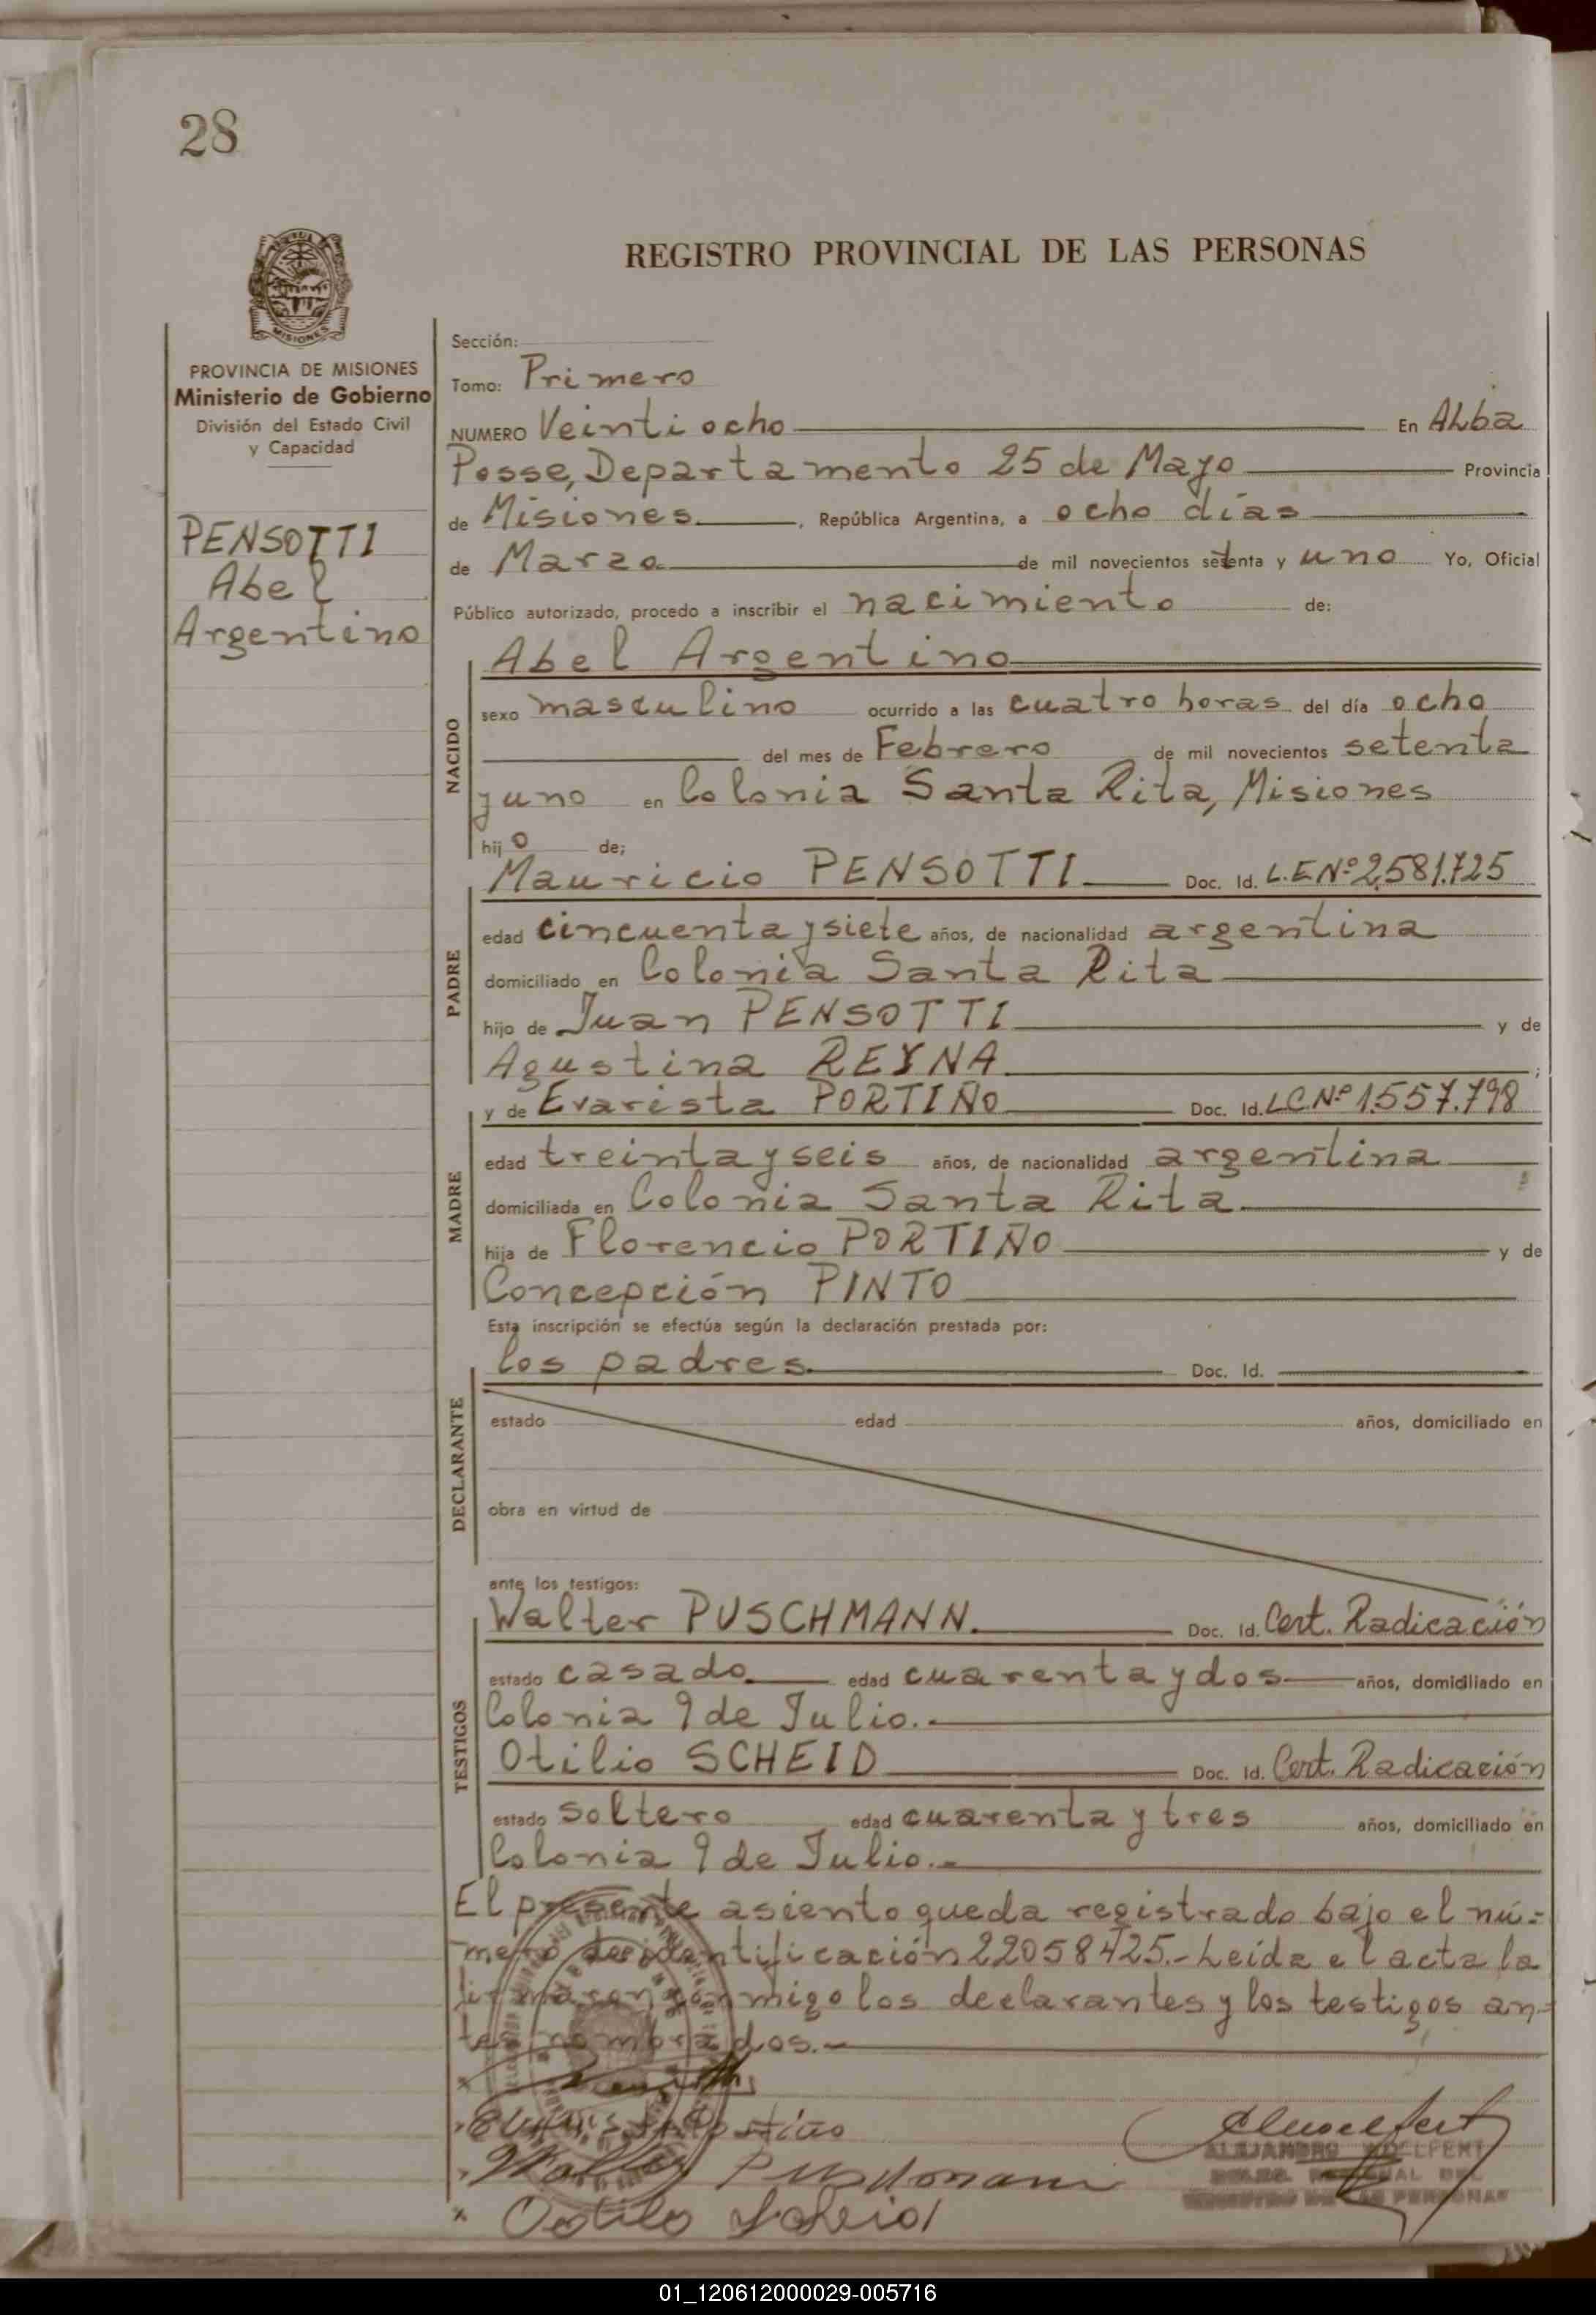 28
REGISTRO PROVINCIAL DE LAS PERSONAS
MISIONES
PROVINCIA DE MISIONES
Ministerio de Gobierno
División del Estado Civil
y Capacidad
PENSOTTI
Abel
Argentino
Sección:
Tomo: Primero
NUMERO Veintiocho En Alba
Posse, Departamento 25 de Mayo Provincia
de Misiones, República Argentina, a ocho días
de Marzo de mil novecientos setenta y uno Yo, Oficial
Público autorizado, procedo a inscribir el nacimiento de:
NACIDO
Abel Argentino
sexo masculino ocurrido a las cuatro horas del día ocho
del mes de Febrero de mil novecientos setenta
y uno en Colonia Santa Rita, Misiones
hijo de;
PADRE
Mauricio PENSOTTI Doc. Id. L.E Nº 2.581.725
edad cincuenta y siete años, de nacionalidad argentina
domiciliado en Colonia Santa Rita
hijo de Juan PENSOTTI y de
Agustina REYNA ;
MADRE
y de Evarista PORTIÑO Doc. Id. LC.Nº 1.557.798
edad treinta y seis años, de nacionalidad argentina
domiciliada en Colonia Santa Rita
hija de Florencio PORTIÑO y de
Concepción PINTO
Esta inscripción se efectúa según la declaración prestada por:
DECLARANTE
los padres. Doc. Id.
estado edad años, domiciliado en
obra en virtud de
ante los testigos:
TESTIGOS
Walter PUSCHMANN. Doc. Id. Cert. Radicación
estado casado edad cuarenta y dos años, domiciliado en
Colonia 9 de Julio.-
Otilio SCHEID Doc. Id. Cert. Radicación
estado soltero edad cuarenta y tres años, domiciliado en
Colonia 9 de Julio.-
El presente asiento queda registrado bajo el nú-
mero de identificación 22058425.- Leída el acta la
firmaron conmigo los declarantes y los testigos an-
tes nombrados.-
Walter Puschmann
Otilio Scheid
ALEJANDRO WOELFERT
01_120612000029-005716